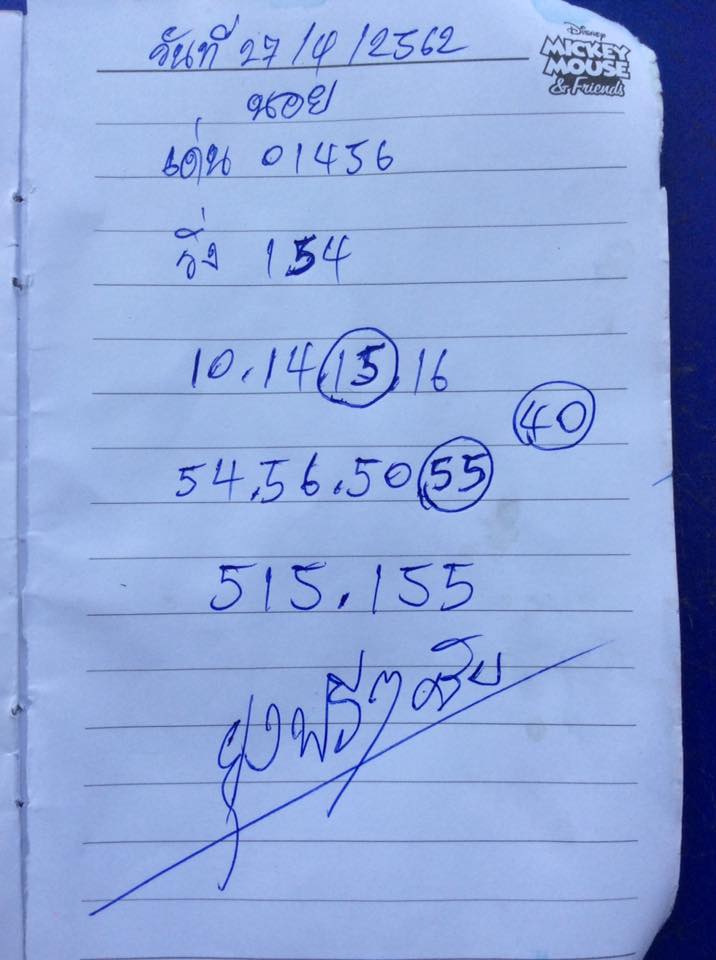 วันที่ 27/4/2562
DISNEY
MICKEY
MOUSE
& Friends
นอย
เด่น 01456
วิ่ง 154
10.14.15.16
40
54.56.50 55
515.155
ฟรีๆ